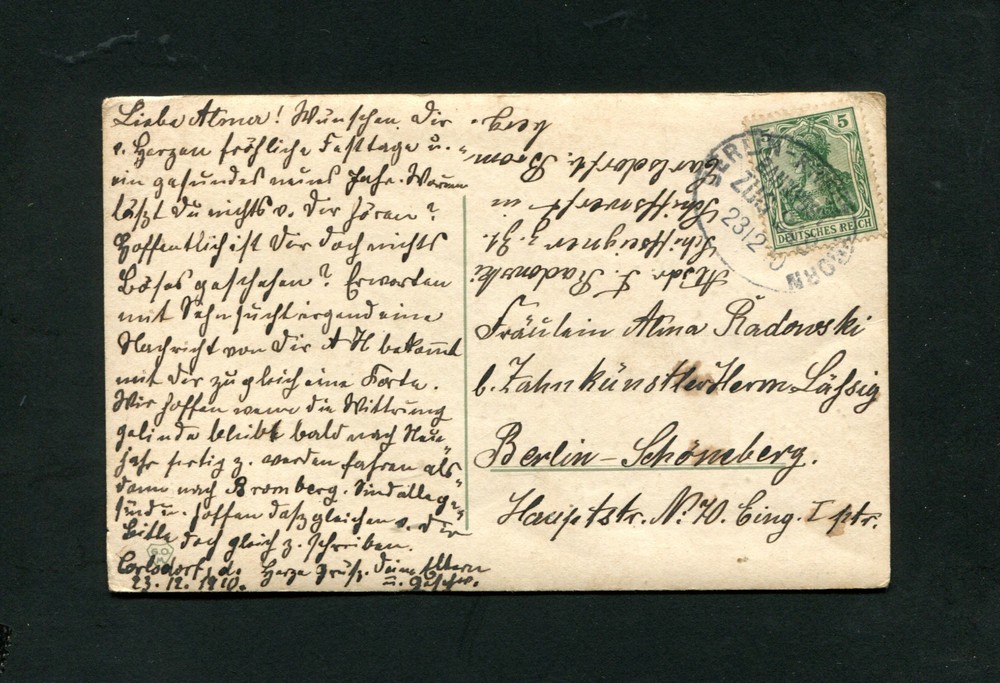 Liebe Alma! Wünschen Dir
v. Herzen fröhliche Festtage u.
ein gesundes neues Jahr. Warum
läßt Du nichts v. Dir hören?
Hoffentlich ist Dir doch nichts
Böses geschehen? Erwarten
mit Sehnsucht irgend eine
Nachricht von Dir bekommt
mit Dir zugleich eine Karte.
Wir hoffen wenn die Wittrung
gelinde bleibt bald nach Neu-
jahr fertig z. werden fahren als
dann nach Bromberg. Sind alle ge-
sund u. hoffen daßgleichen v. Dir
Bitte doch gleich z. schreiben.
Carlsdorf, d. Herzl Gruß. Deine Eltern
23.12.1910. u. Geschw.
Absdr. F. Radowski
Schiffseigner z. Zt.
Schiffswerft in
Carlsdorf b. Brom-
berg.
5
DEUTSCHES REICH
2312
Fräulein Alma Radowski
b. Zahnkünstler Herrn Läßig
Berlin-Schöneberg.
Hauptstr. No. 70. Eing. I ptr.